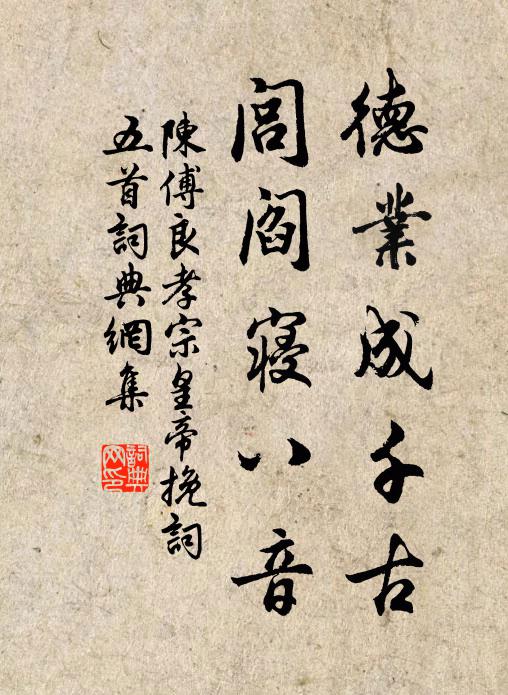 德業成千古
閭閻寝八音
陳傅良孝宗皇帝挽詞
五首詞典網集
詞典
网印